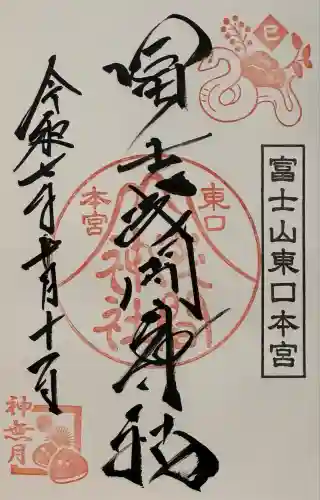 巳
富士山東口本宮
冨士浅間神社
東口
本宮
浅間
神社
令和七年十月十一日
神無月